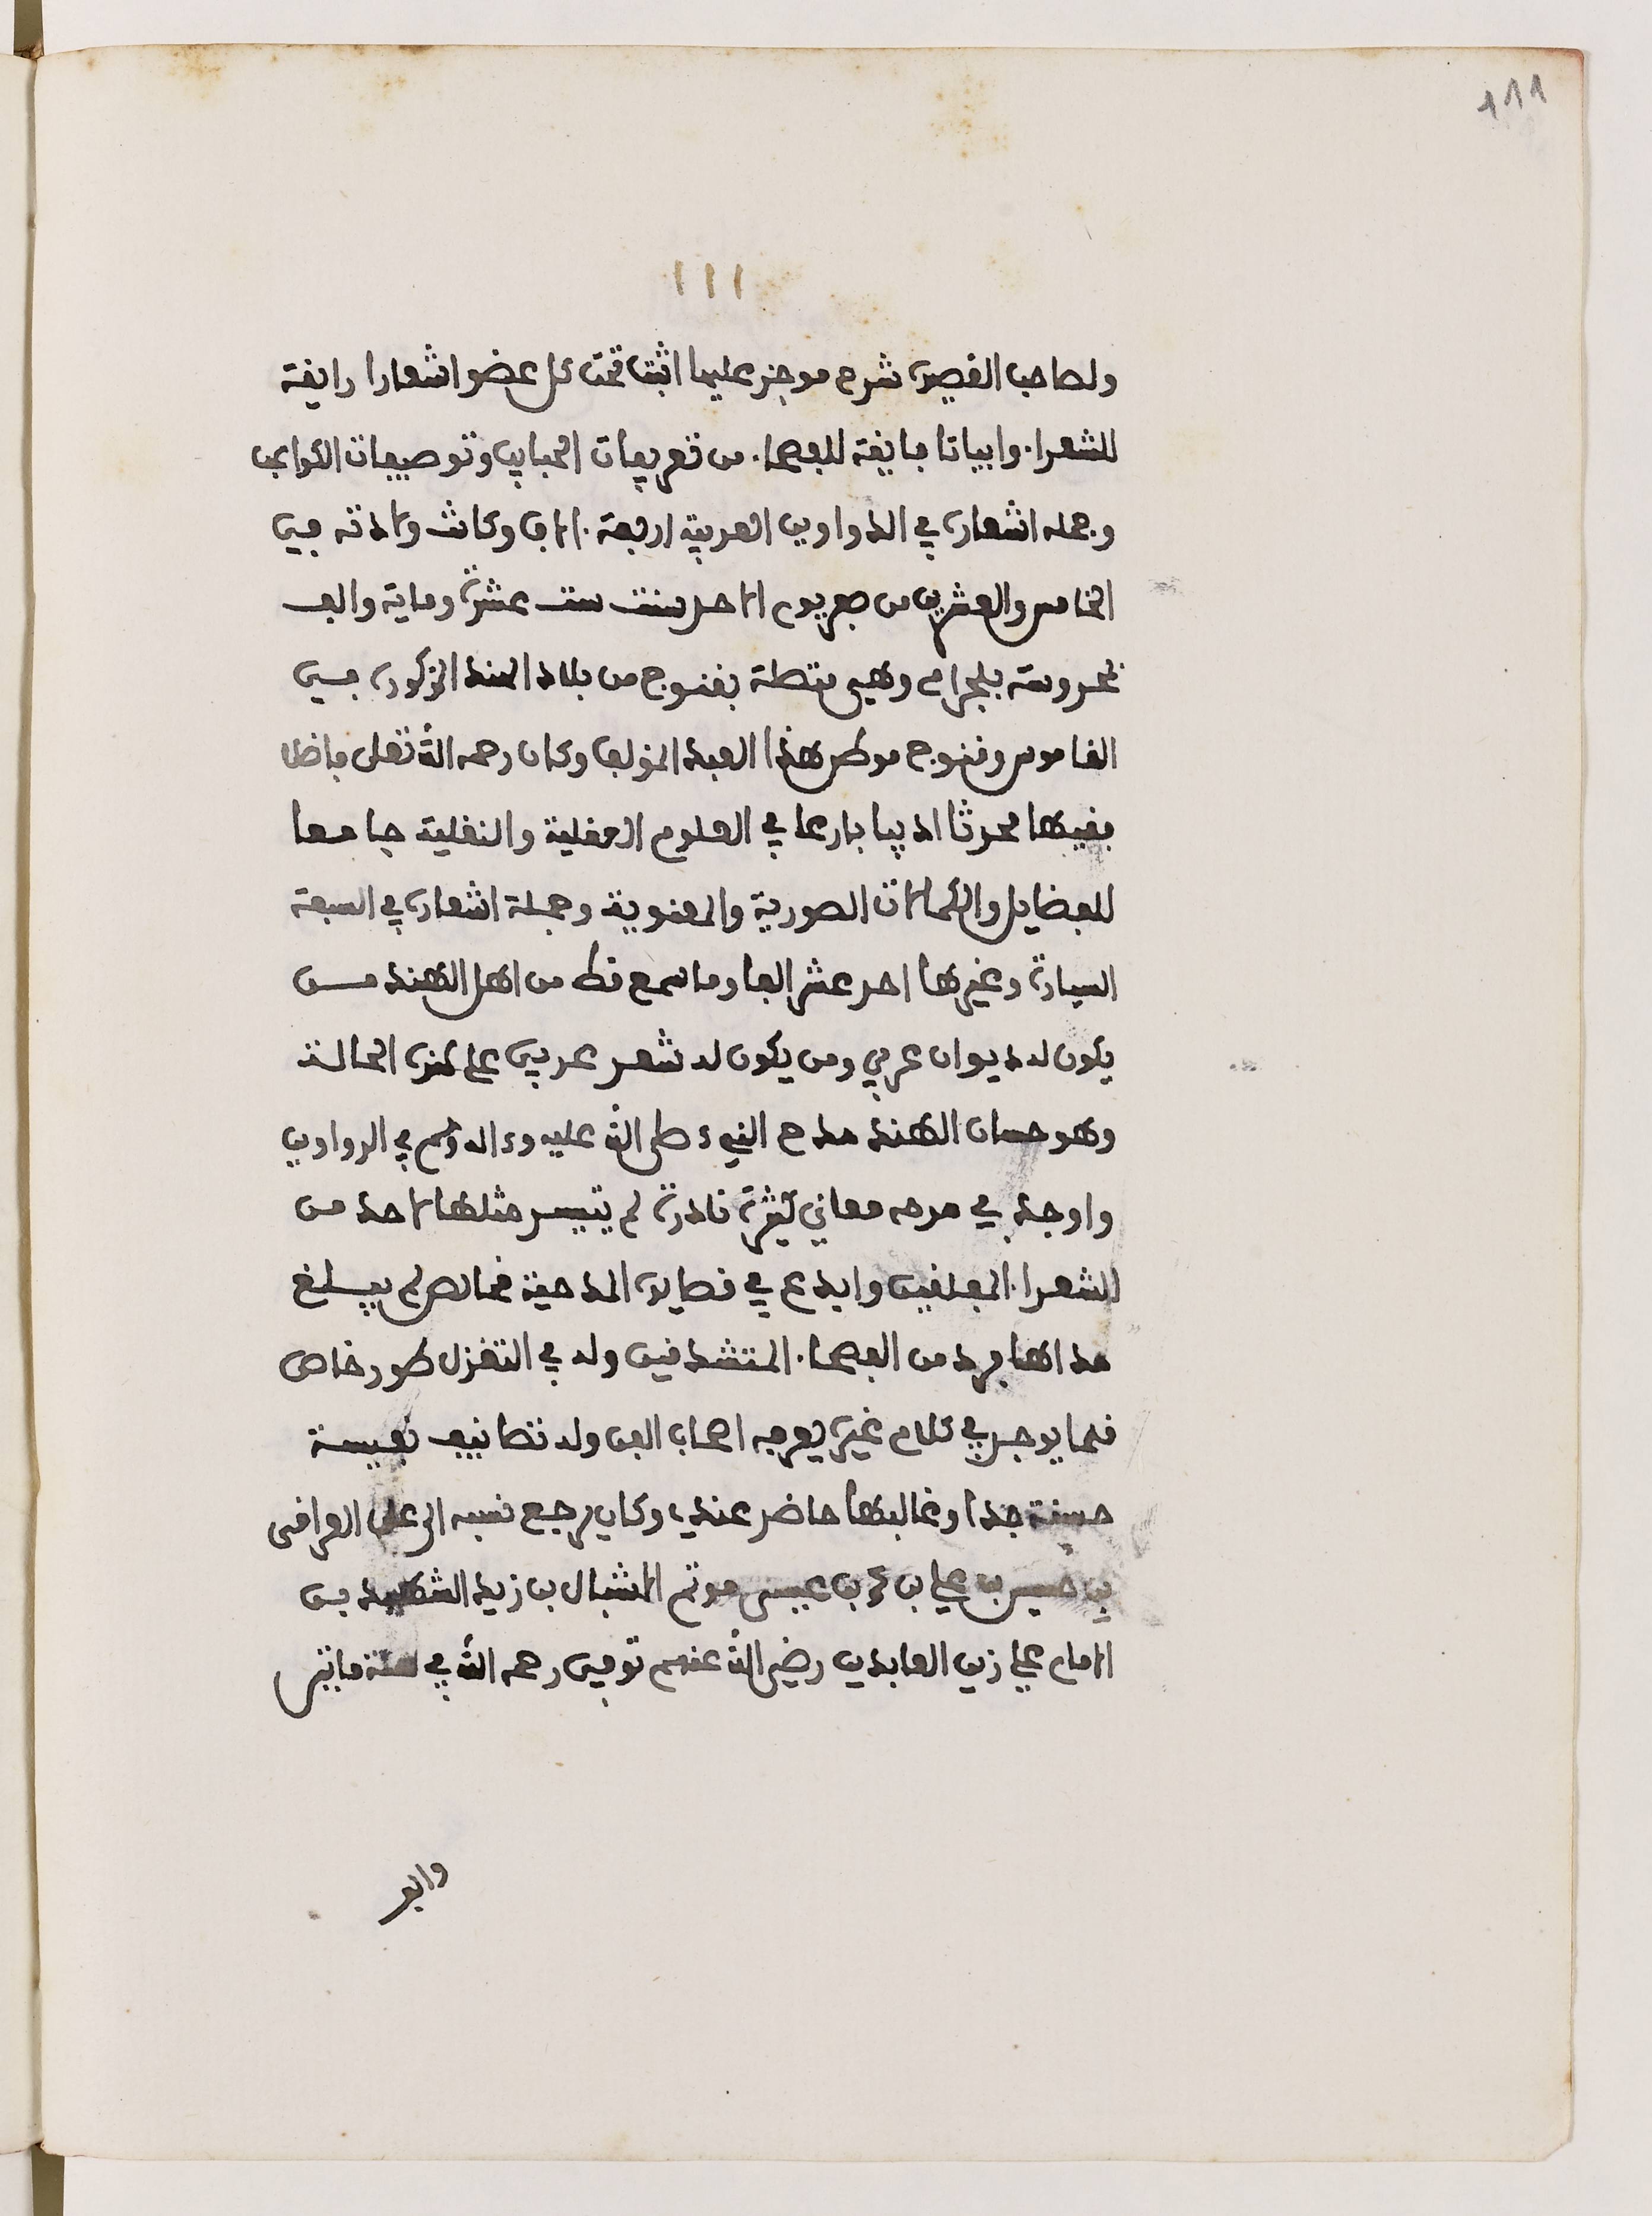 ١١١
١١١
ولصاحب القصيدة شرح موجز عليها اثبت تحت كل عضو اشعارا رايقة
للشعراء وابياتا فايقة للفصحاء من تعريفات الحبايب وتوصيفات الكواعب
وجملة اشعاره في الدواوين العربية اربعة ءالاف وكانت ولادته في
الخامس والعشرين من صفر يوم الاحد سنة ست عشرة وماية والف
بمحروسة بلجرام وهي متصلة بقنوج من بلاد الهند المذكورة في
القاموس وقنوج موطن هذا العبد المؤلف وكان رحمه الله تعلى فاضلا
فقيها محدثا اديبا بارعا في العلوم العقلية والنقلية جامعا
للفضايل والكمالات الصورية والمعنوية وجملة اشعاره في السبعة
السيارة وغيرها احد عشر الفا وما سمع قط من اهل الهند من
يكون له ديوان عربي ومن يكون له شعر عربي على هذه الحالة
وهو حسان الهند مدح النبيء صلى الله عليه وءاله وسلم في الدواوين
واوجد في مدحه معاني كثيرة نادرة لم يتيسر مثلها لاحد من
الشعراء المفلقين وابدع في قصايده المدحية مخالص لم يبلغ
مداها فرد من الفصحاء المتشدقين وله في التغزل طور خاص
قلما يوجد في كلام غيره يعرفه اصحاب الفن وله تصانيف نفيسة
حسنة جدا وغالبها حاضر عندي، وكان يرجع نسبه الى علي العراقى
بن حسين بن علي بن محمد بن عيسى موتم الاشبال بن زيد الشهيد بن
الامام علي زين العابدين رضي الله عنهم توفي رحمه الله في سنة مايتين
وابو